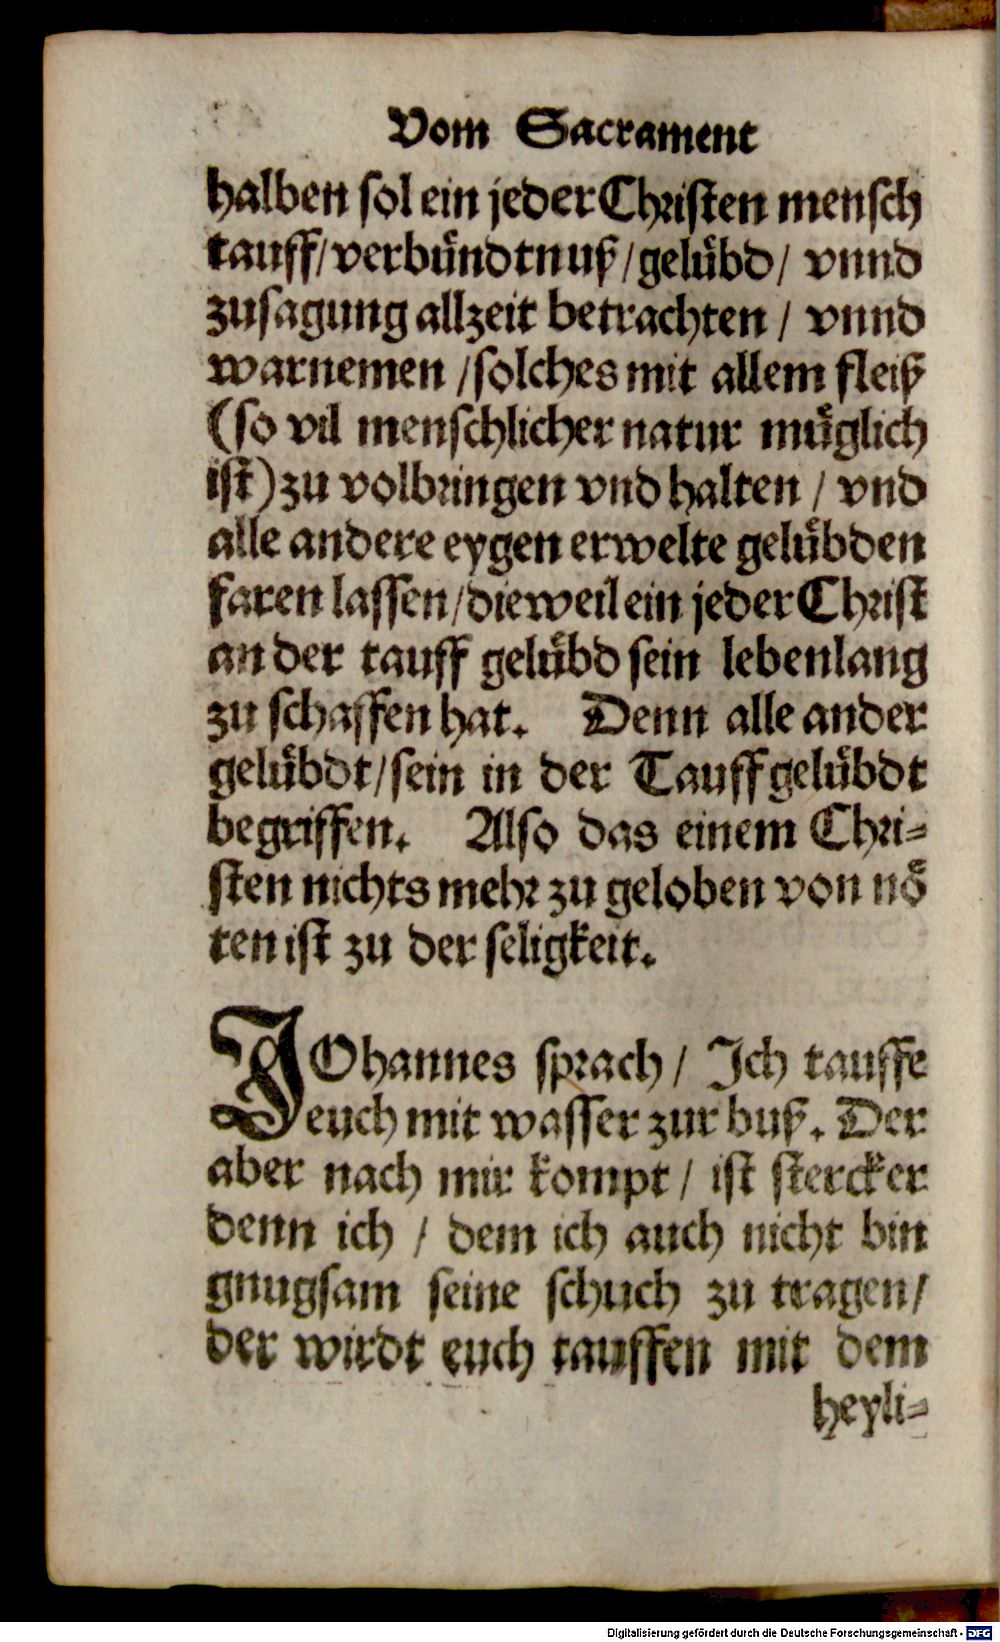 Vom Sacrament
halben sol ein jeder Christen mensch
tauff/ verbündtnuß/ gelübd/ vnnd
zusagung allzeit betrachten / vnnd
warnemen / solches mit allem fleiß
(so vil menschlicher natur müglich
ist) zu volbringen vnd halten / vnd
alle andere eygen erwelte gelübden
faren lassen/ dieweil ein jeder Christ
an der tauff gelübd sein lebenlang
zu schaffen hat. Denn alle ander
gelübdt/ sein in der Tauffgelübdt
begriffen. Also das einem Chri=
sten nichts mehr zu geloben von nö
ten ist zu der seligkeit.
JOhannes sprach / Ich tauffe
euch mit wasser zur buß. Der
aber nach mir kompt / ist stercker
denn ich / dem ich auch nicht bin
gnugsam seine schuch zu tragen/
der wirdt euch tauffen mit dem
heyli=
Digitalisierung gefördert durch die Deutsche Forschungsgemeinschaft - DFG